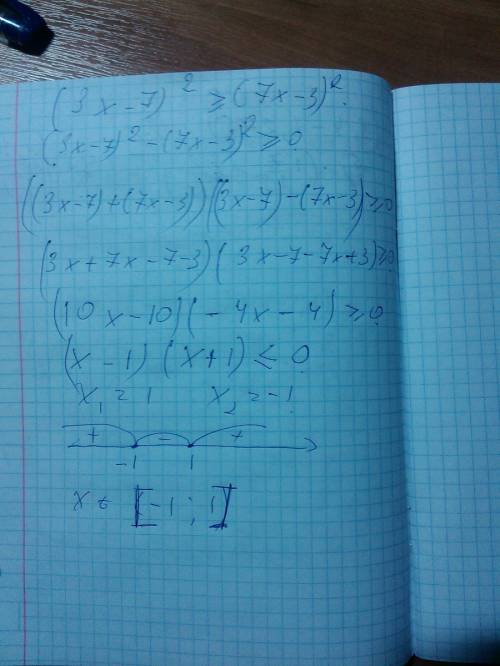 (3x-7)² ≥ (7x-3)².
(3x-7)²-(7x-3)² ≥ 0
((3x-7)+(7x-3))((3x-7)-(7x-3) ≥ 0
(3x+7x-7-3)(3x-7-7x+3) ≥ 0
(10x-10)(-4x-4) ≥ 0
(x-1)(x+1) ≤ 0
x₁=1 x₂=-1
+ - +
-1 1
x ∈ [-1; 1]